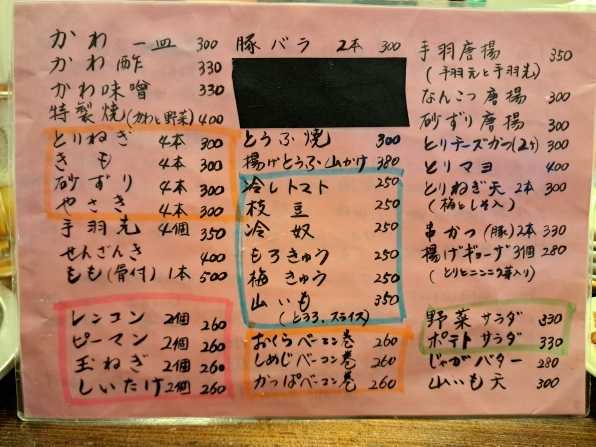 かわ 一皿 300
かわ酢 330
かわ味噌 330
特製焼(かわと野菜) 400
とりねぎ 4本 300
きも 4本 300
砂ずり 4本 300
やさき 4本 300
手羽先 4個 350
せんざんき 400
もも(骨付) 1本 500
レンコン 2個 260
ピーマン 2個 260
玉ねぎ 2個 260
しいたけ 2個 260
豚バラ 2本 300
とうふ焼 300
揚げとうふ山かけ 380
冷しトマト 250
枝豆 250
冷奴 250
もろきゅう 250
梅きゅう 250
山いも 350
(とろろ、スライス)
おくらベーコン巻 260
しめじベーコン巻 260
かっぱベーコン巻 260
手羽唐揚 350
(手羽元と手羽先)
なんこつ唐揚 300
砂ずり唐揚 300
とりチーズカツ(2ヶ) 300
とりマヨ 400
とりねぎ天 2本 300
(梅としそ入)
串かつ(豚)2本 330
揚げギョーザ 3個 280
(とりとニンニク芽入り)
野菜サラダ 330
ポテトサラダ 330
じゃがバター 280
山いも天 300